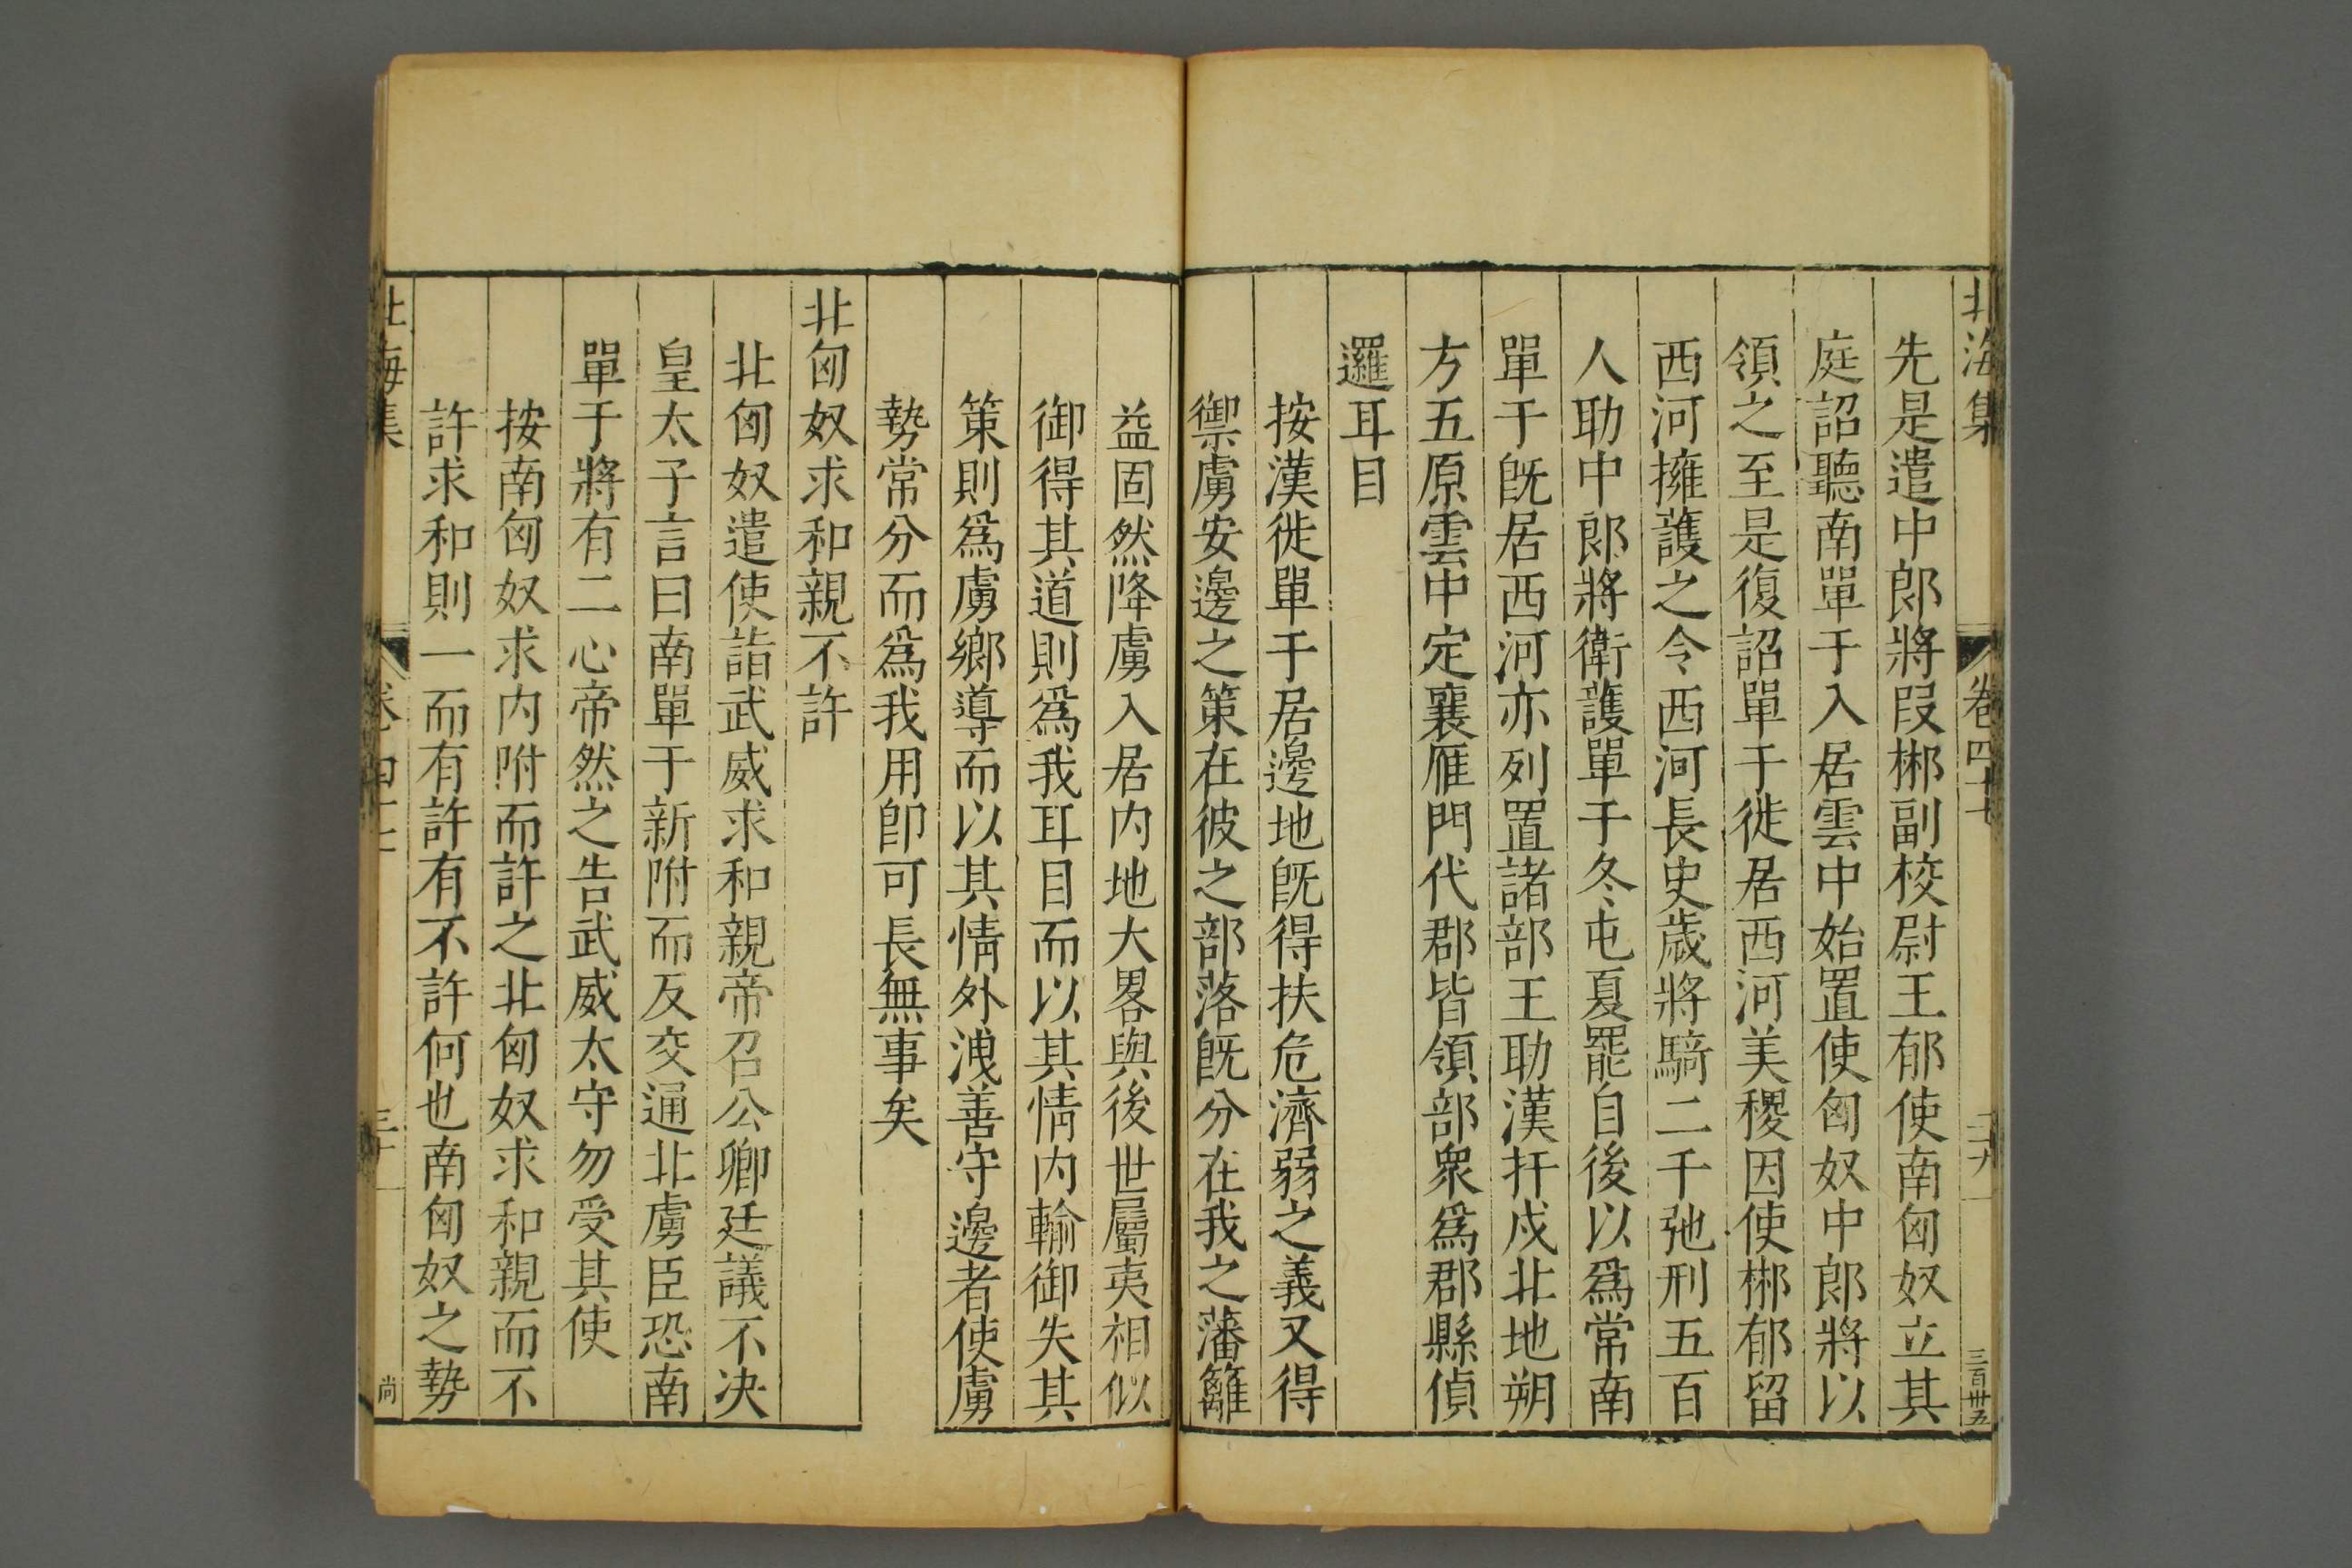 北海集
卷四十七
二十九
三百卅五
先是遣中郎將叚郴副校尉王郁使南匈奴立其
庭詔聽南單于入居雲中始置使匈奴中郎將以
領之至是復詔單于徙居西河美稷因使郴郁留
西河擁護之令西河長史歲將騎二千弛刑五百
人助中郎將衛護單于冬屯夏罷自後以爲常南
單于旣居西河亦列置諸部王助漢扞戍北地朔
方五原雲中定襄雁門代郡皆領部衆爲郡縣偵
邏耳目
按漢徙單于居邊地旣得扶危濟弱之義又得
禦虜安邊之策在彼之部落旣分在我之藩籬
益固然降虜入居内地大畧與後世屬夷相似
御得其道則爲我耳目而以其情内輸御失其
策則爲虜鄉導而以其情外洩善守邊者使虜
勢常分而爲我用卽可長無事矣
北匈奴求和親不許
北匈奴遣使詣武威求和親帝召公卿廷議不决
皇太子言曰南單于新附而反交通北虜臣恐南
單于將有二心帝然之告武威太守勿受其使
按南匈奴求内附而許之北匈奴求和親而不
許求和則一而有許有不許何也南匈奴之勢
北海集
卷四十七
三十
尚